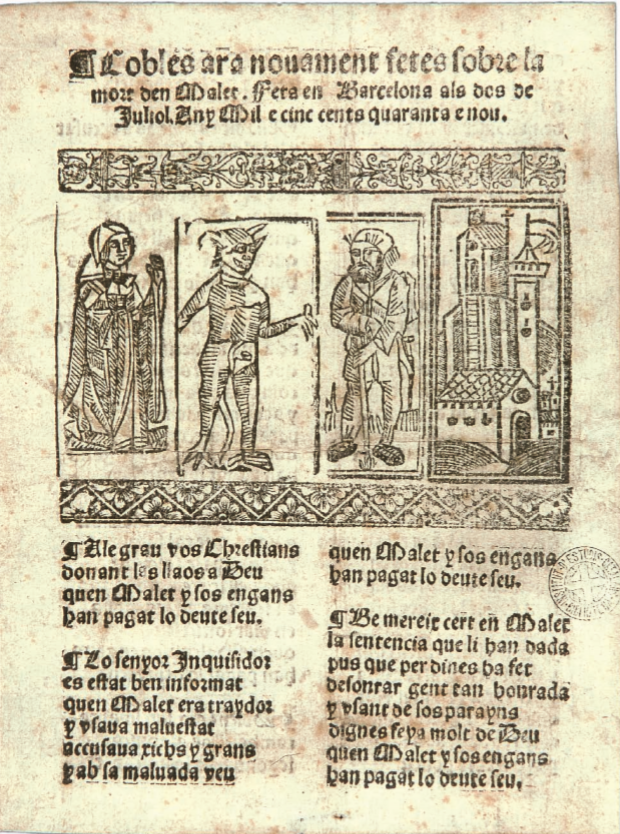 ¶Cobles ara nouament fetes sobre la
mort den Malet. Feta en Barcelona als dos de
Juliol. Any Mil e cinc cents quaranta e nou.
¶Alegrau vos Chrestians
donant les llaos a Deu
quen Malet y sos engans
han pagat lo deute seu.
¶Lo senyor Inquisidor
es estat ben informat
quen Malet era traydor
y vsaua maluestat
accusaua richs y grans
y ab sa maluada veu
quen Malet y sos engans
han pagat lo deute seu.
¶Be mereix cert en Malet
la sentencia que li han dada
pus que per dines ha fet
desonrar gent tan honrada
y vsant de sos parayns
dignes feya molt de Deu
quen Malet y sos engans
han pagat lo deute seu.